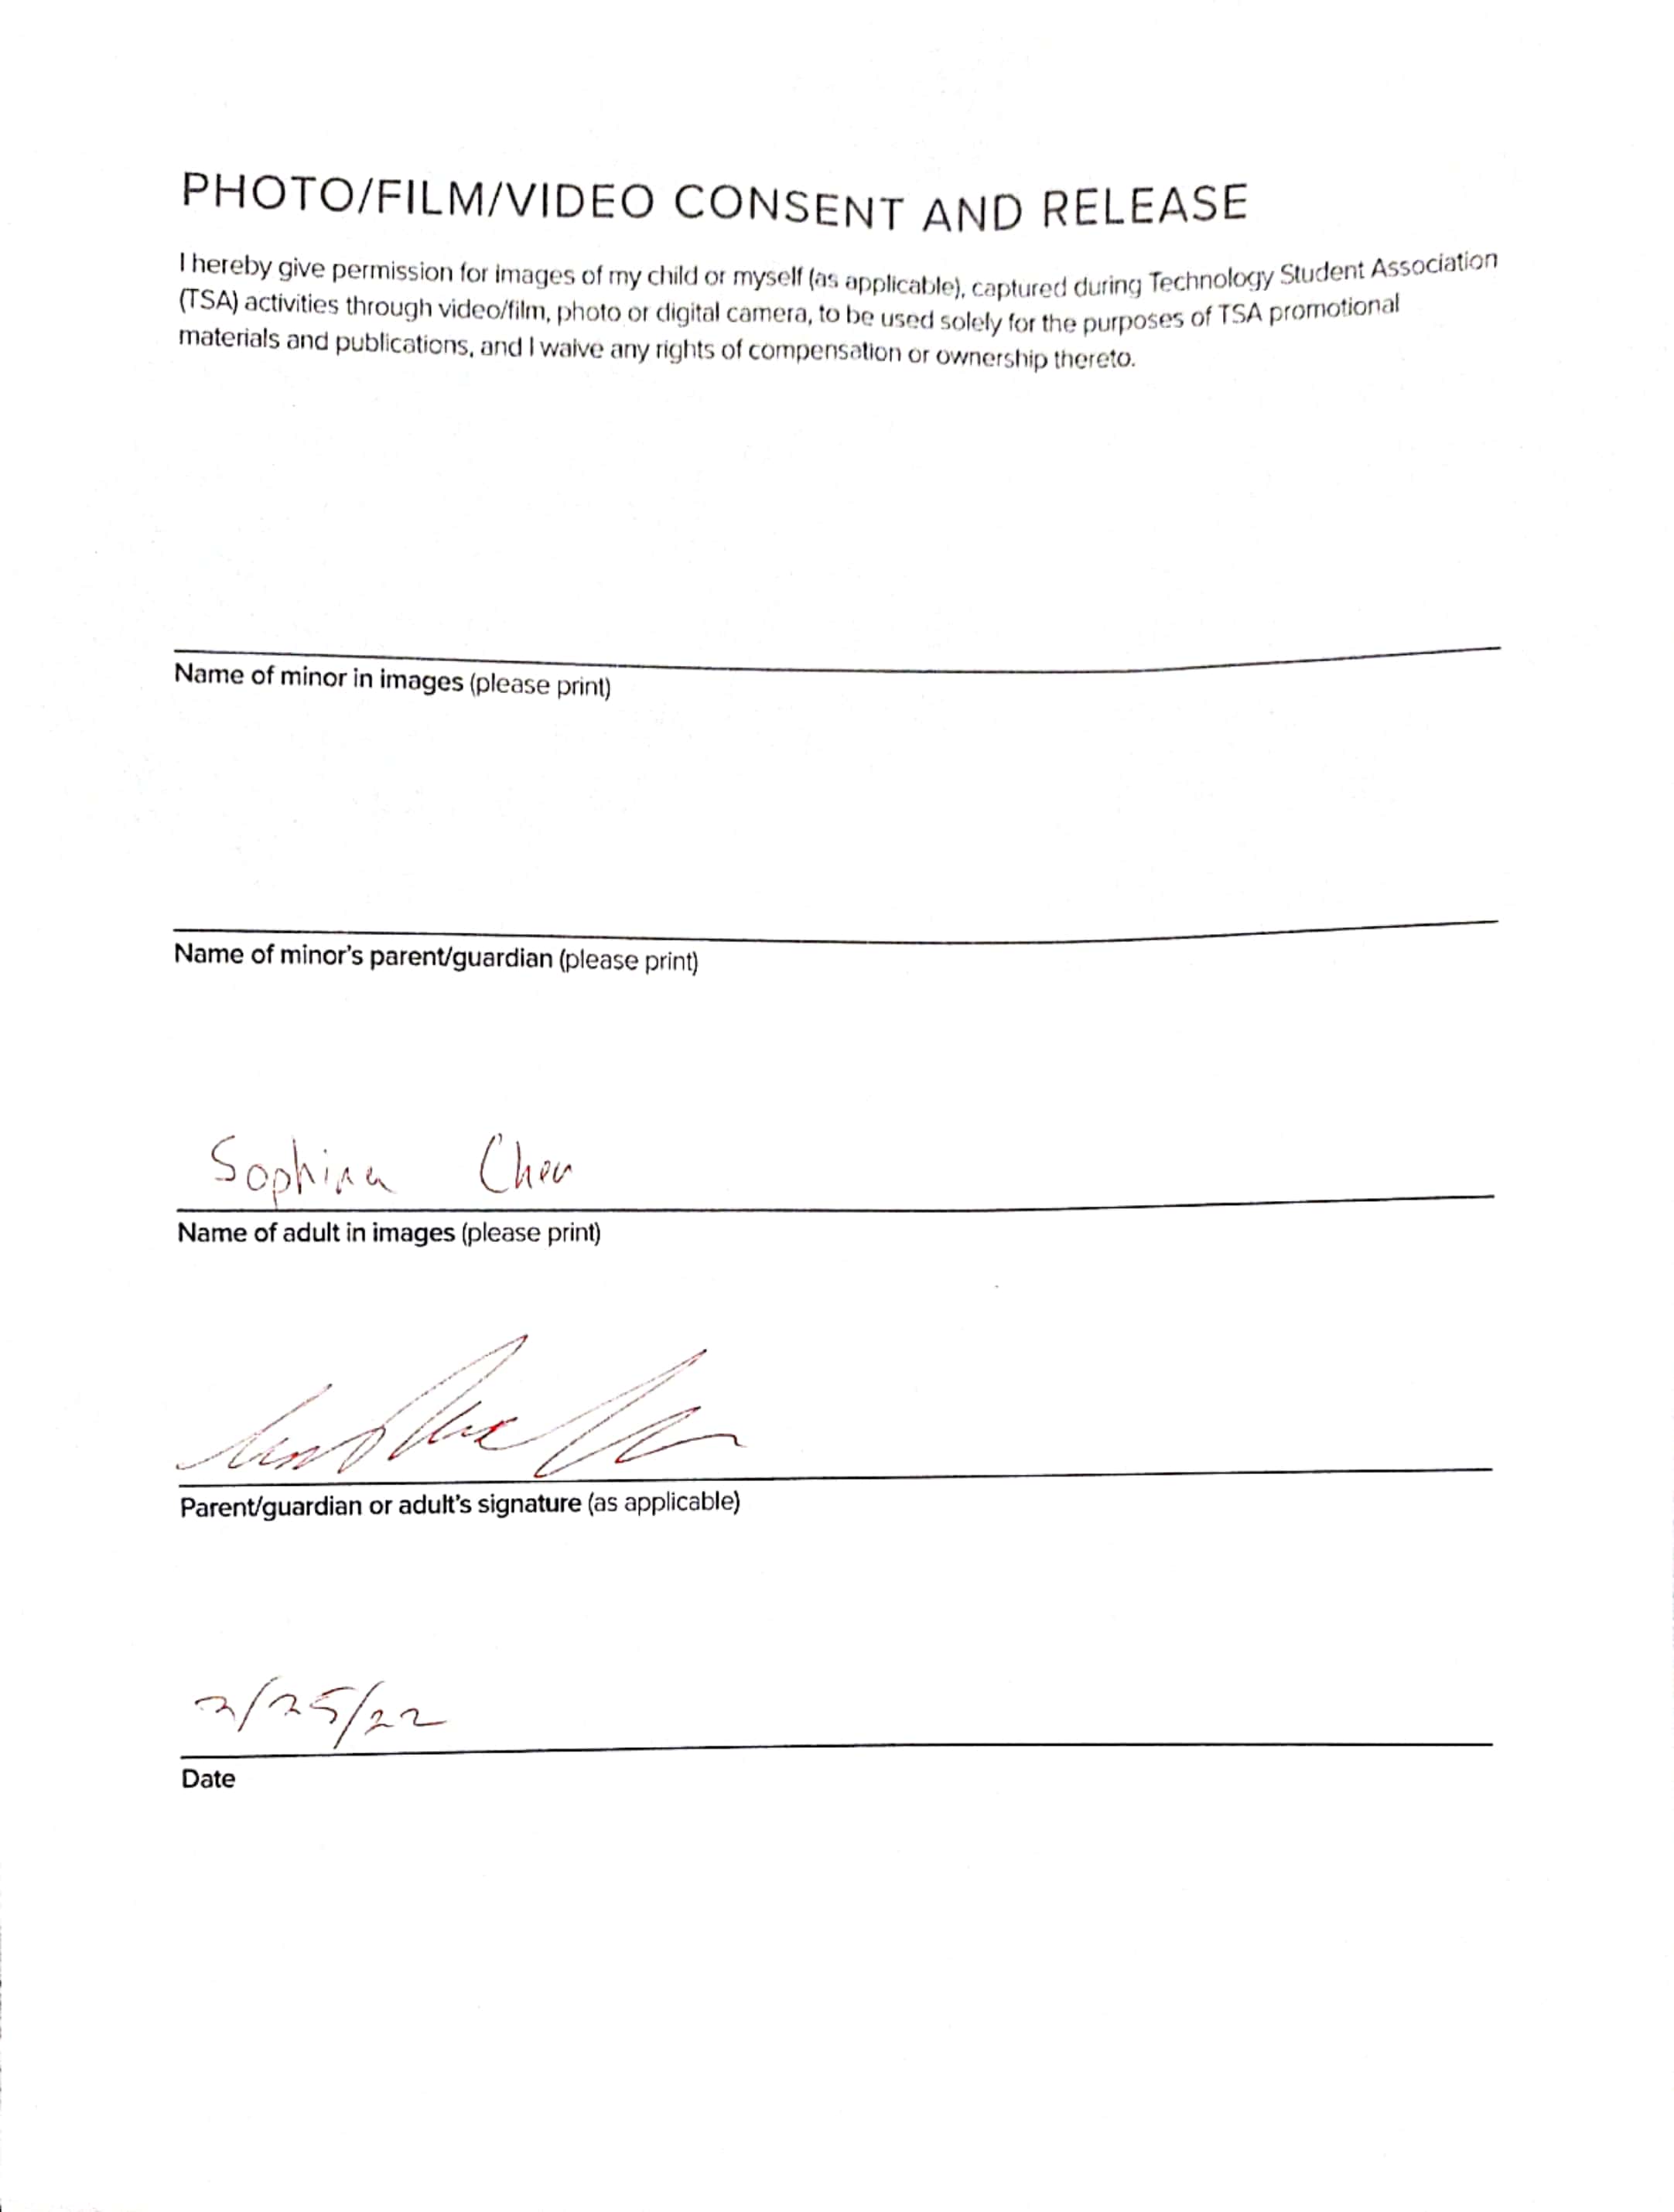 PHOTO/FILM/VIDEO CONSENT AND RELEASE
I hereby give permission for images of my child or myself (as applicable), captured during Technology Student Association
(TSA) activities through video/film, photo or digital camera, to be used solely for the purposes of TSA promotional
materials and publications, and I waive any rights of compensation or ownership thereto.
Name of minor in images (please print)
Name of minor's parent/guardian (please print)
Sophina Chen
Name of adult in images (please print)
Parent/guardian or adult's signature (as applicable)
2/25/22
Date